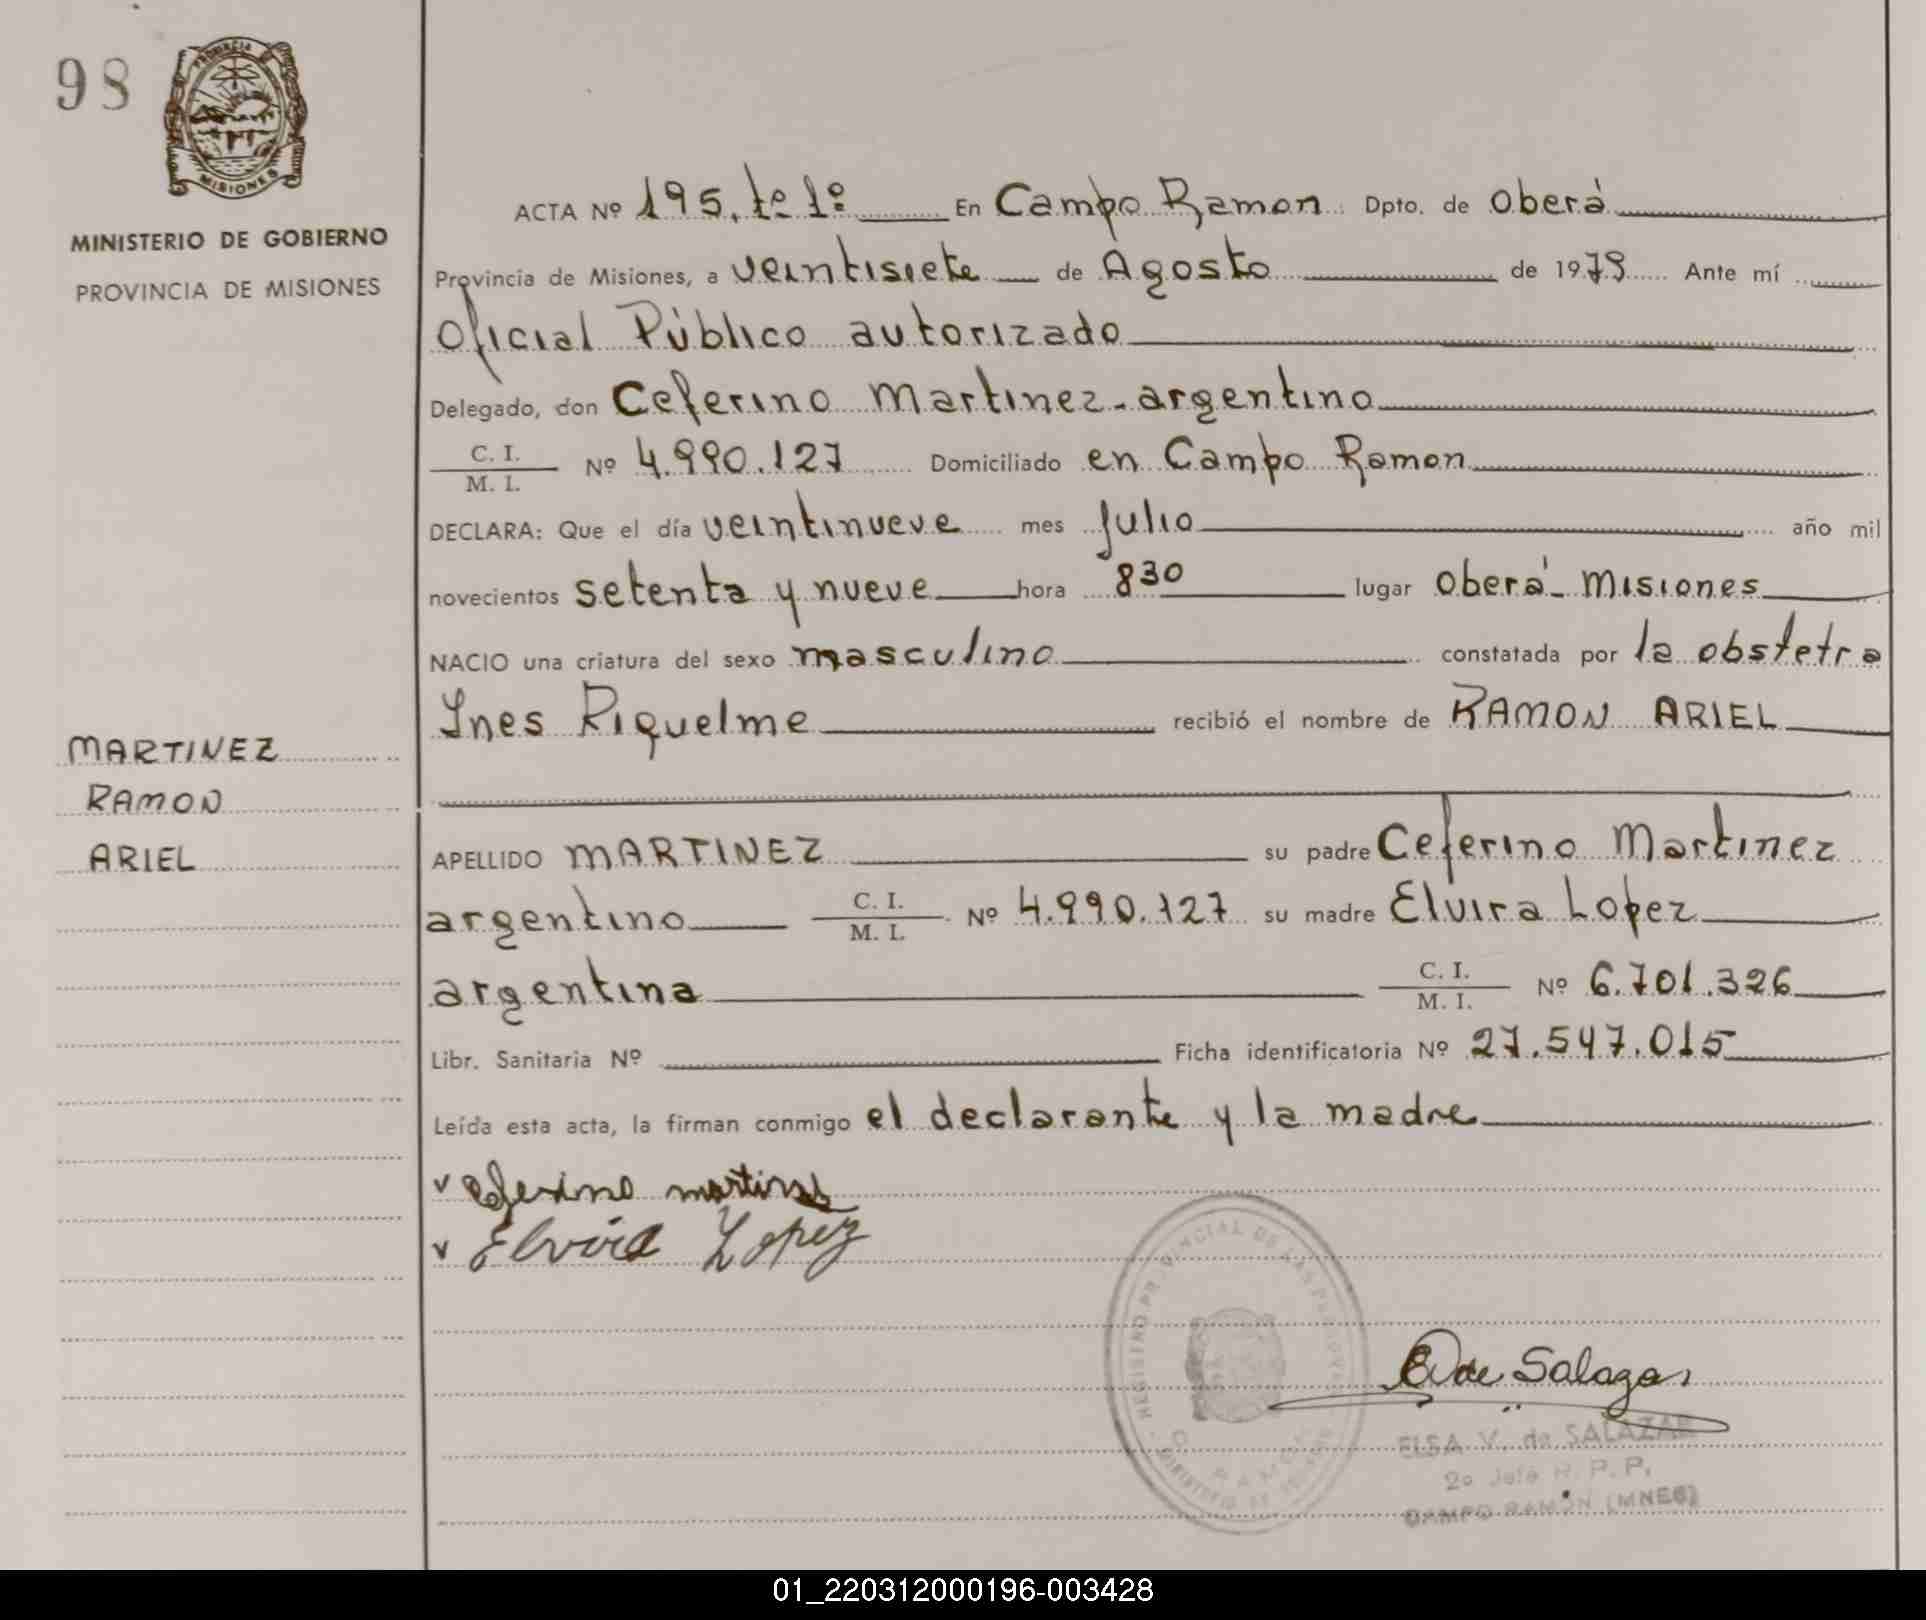 98
PROVINCIA
MISIONES
MINISTERIO DE GOBIERNO
PROVINCIA DE MISIONES
ACTA Nº 195. tº 1º En Campo Ramon Dpto. de Oberá
Provincia de Misiones, a veintisiete de Agosto de 1979 Ante mí
Oficial Público autorizado
Delegado, don Ceferino Martinez - argentino
C. I.
M. I. Nº 4.990.127 Domiciliado en Campo Ramon
DECLARA: Que el día veintinueve mes Julio año mil
novecientos setenta y nueve hora 830 lugar Oberá - Misiones
NACIO una criatura del sexo masculino constatada por la obstetra
Ines Riquelme recibió el nombre de RAMON ARIEL
MARTINEZ
RAMON
ARIEL
APELLIDO MARTINEZ su padre Ceferino Martinez
argentino C. I.
M. I. Nº 4.990.127 su madre Elvira Lopez
argentina C. I.
M. I. Nº 6.701.326
Libr. Sanitaria Nº Ficha identificatoria Nº 27.547.015
Leída esta acta, la firman conmigo el declarante y la madre
v Ceferino martinez
v Elvira Lopez
REGISTRO PROVINCIAL DE LAS PERSONAS
E de Salazar
ELSA V. de SALAZAR
2º Jefe R. P. P.
CAMPO RAMON (MNES)
01_220312000196-003428